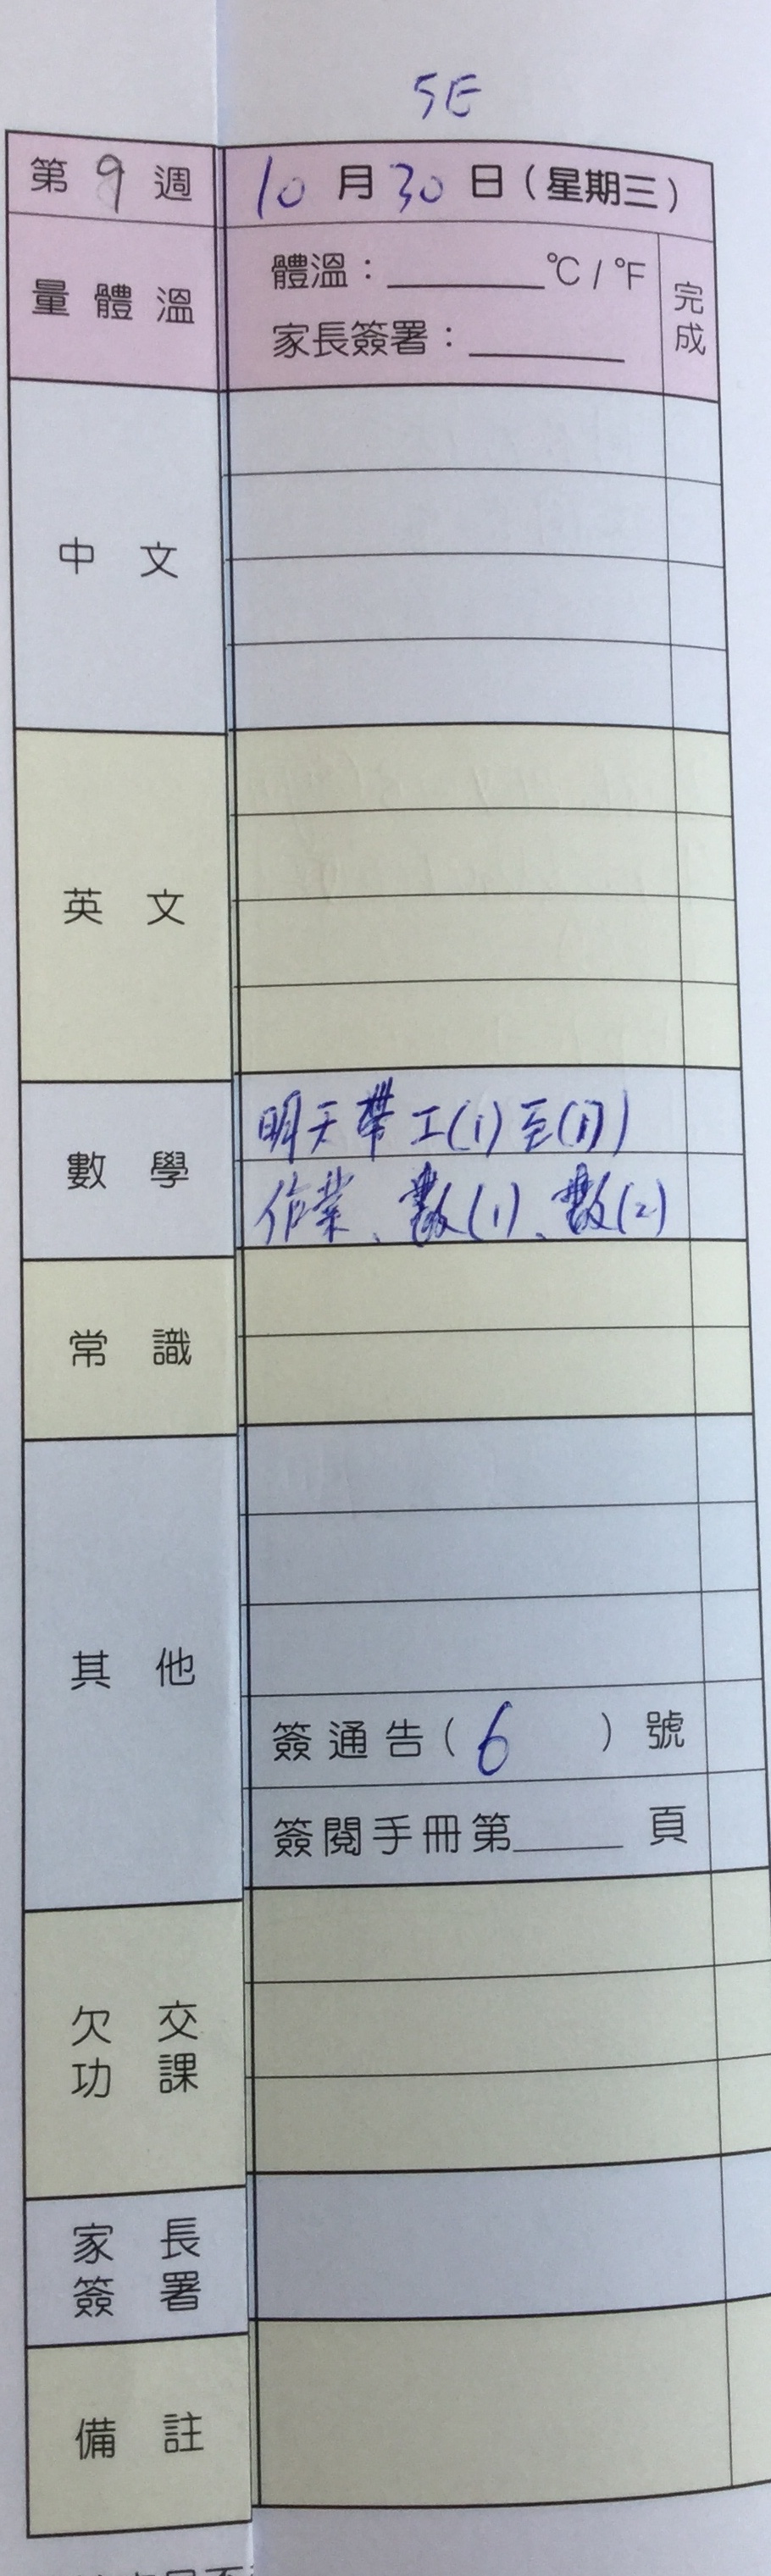 5E
第 9 週 10 月 30 日 (星期三)
量體溫 體溫：______°C / °F 完成
家長簽署：______
中文
英文
數學 明天帶工(1)至(11)
作業、數(1)、數(2)
常識
其他
簽通告( 6 ) 號
簽閱手冊第____ 頁
欠交
功課
家長
簽署
備註